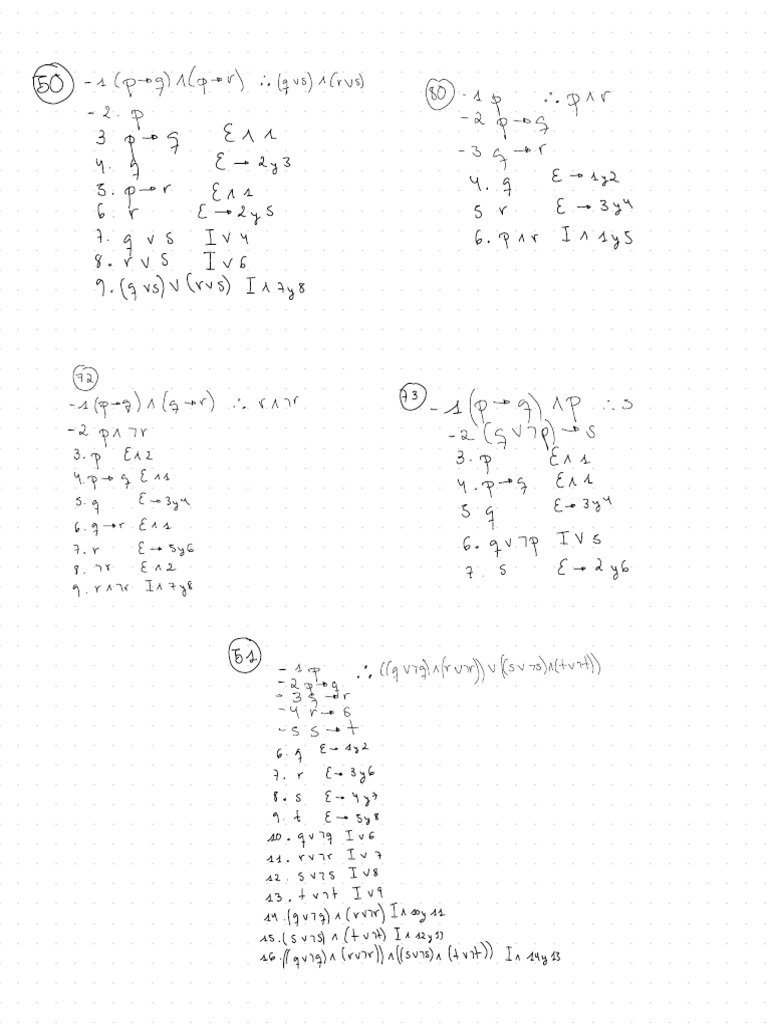 50 -1 (p→q)∧(p→r) ∴ (q∨s)∧(r∨s)
-2. p
3 p→q E∧1
4. q E→2y3
5. p→r E∧1
6. r E→2y5
7. q∨s I∨4
8. r∨s I∨6
9. (q∨s)∨(r∨s) I∧7y8
80 -1 p ∴ p∧r
-2 p→q
-3 q→r
4. q E→1y2
5 r E→3y4
6. p∧r I∧1y5
72
-1(p→q)∧(q→r) ∴ r∧¬r
-2 p∧¬r
3. p E∧2
4. p→q E∧1
5. q E→3y4
6. q→r E∧1
7. r E→5y6
8. ¬r E∧2
9. r∧¬r I∧7y8
73 -1(p→q)∧p ∴ s
-2 (q∨¬p)→s
3. p E∧1
4. p→q E∧1
5 q E→3y4
6. q∨¬p I∨5
7. s E→2y6
51
-1 p ∴ ((q∨¬q)∧(r∨¬r))∨((s∨¬s)∧(t∨¬t))
-2 p→q
-3 q→r
-4 r→s
-5 s→t
6. q E→1y2
7. r E→3y6
8. s E→4y7
9. t E→5y8
10. q∨¬q I∨6
11. r∨¬r I∨7
12. s∨¬s I∨8
13. t∨¬t I∨9
14. (q∨¬q)∧(r∨¬r) I∧10y11
15. (s∨¬s)∧(t∨¬t) I∧12y13
16. ((q∨¬q)∧(r∨¬r))∧((s∨¬s)∧(t∨¬t)) I∧14y15